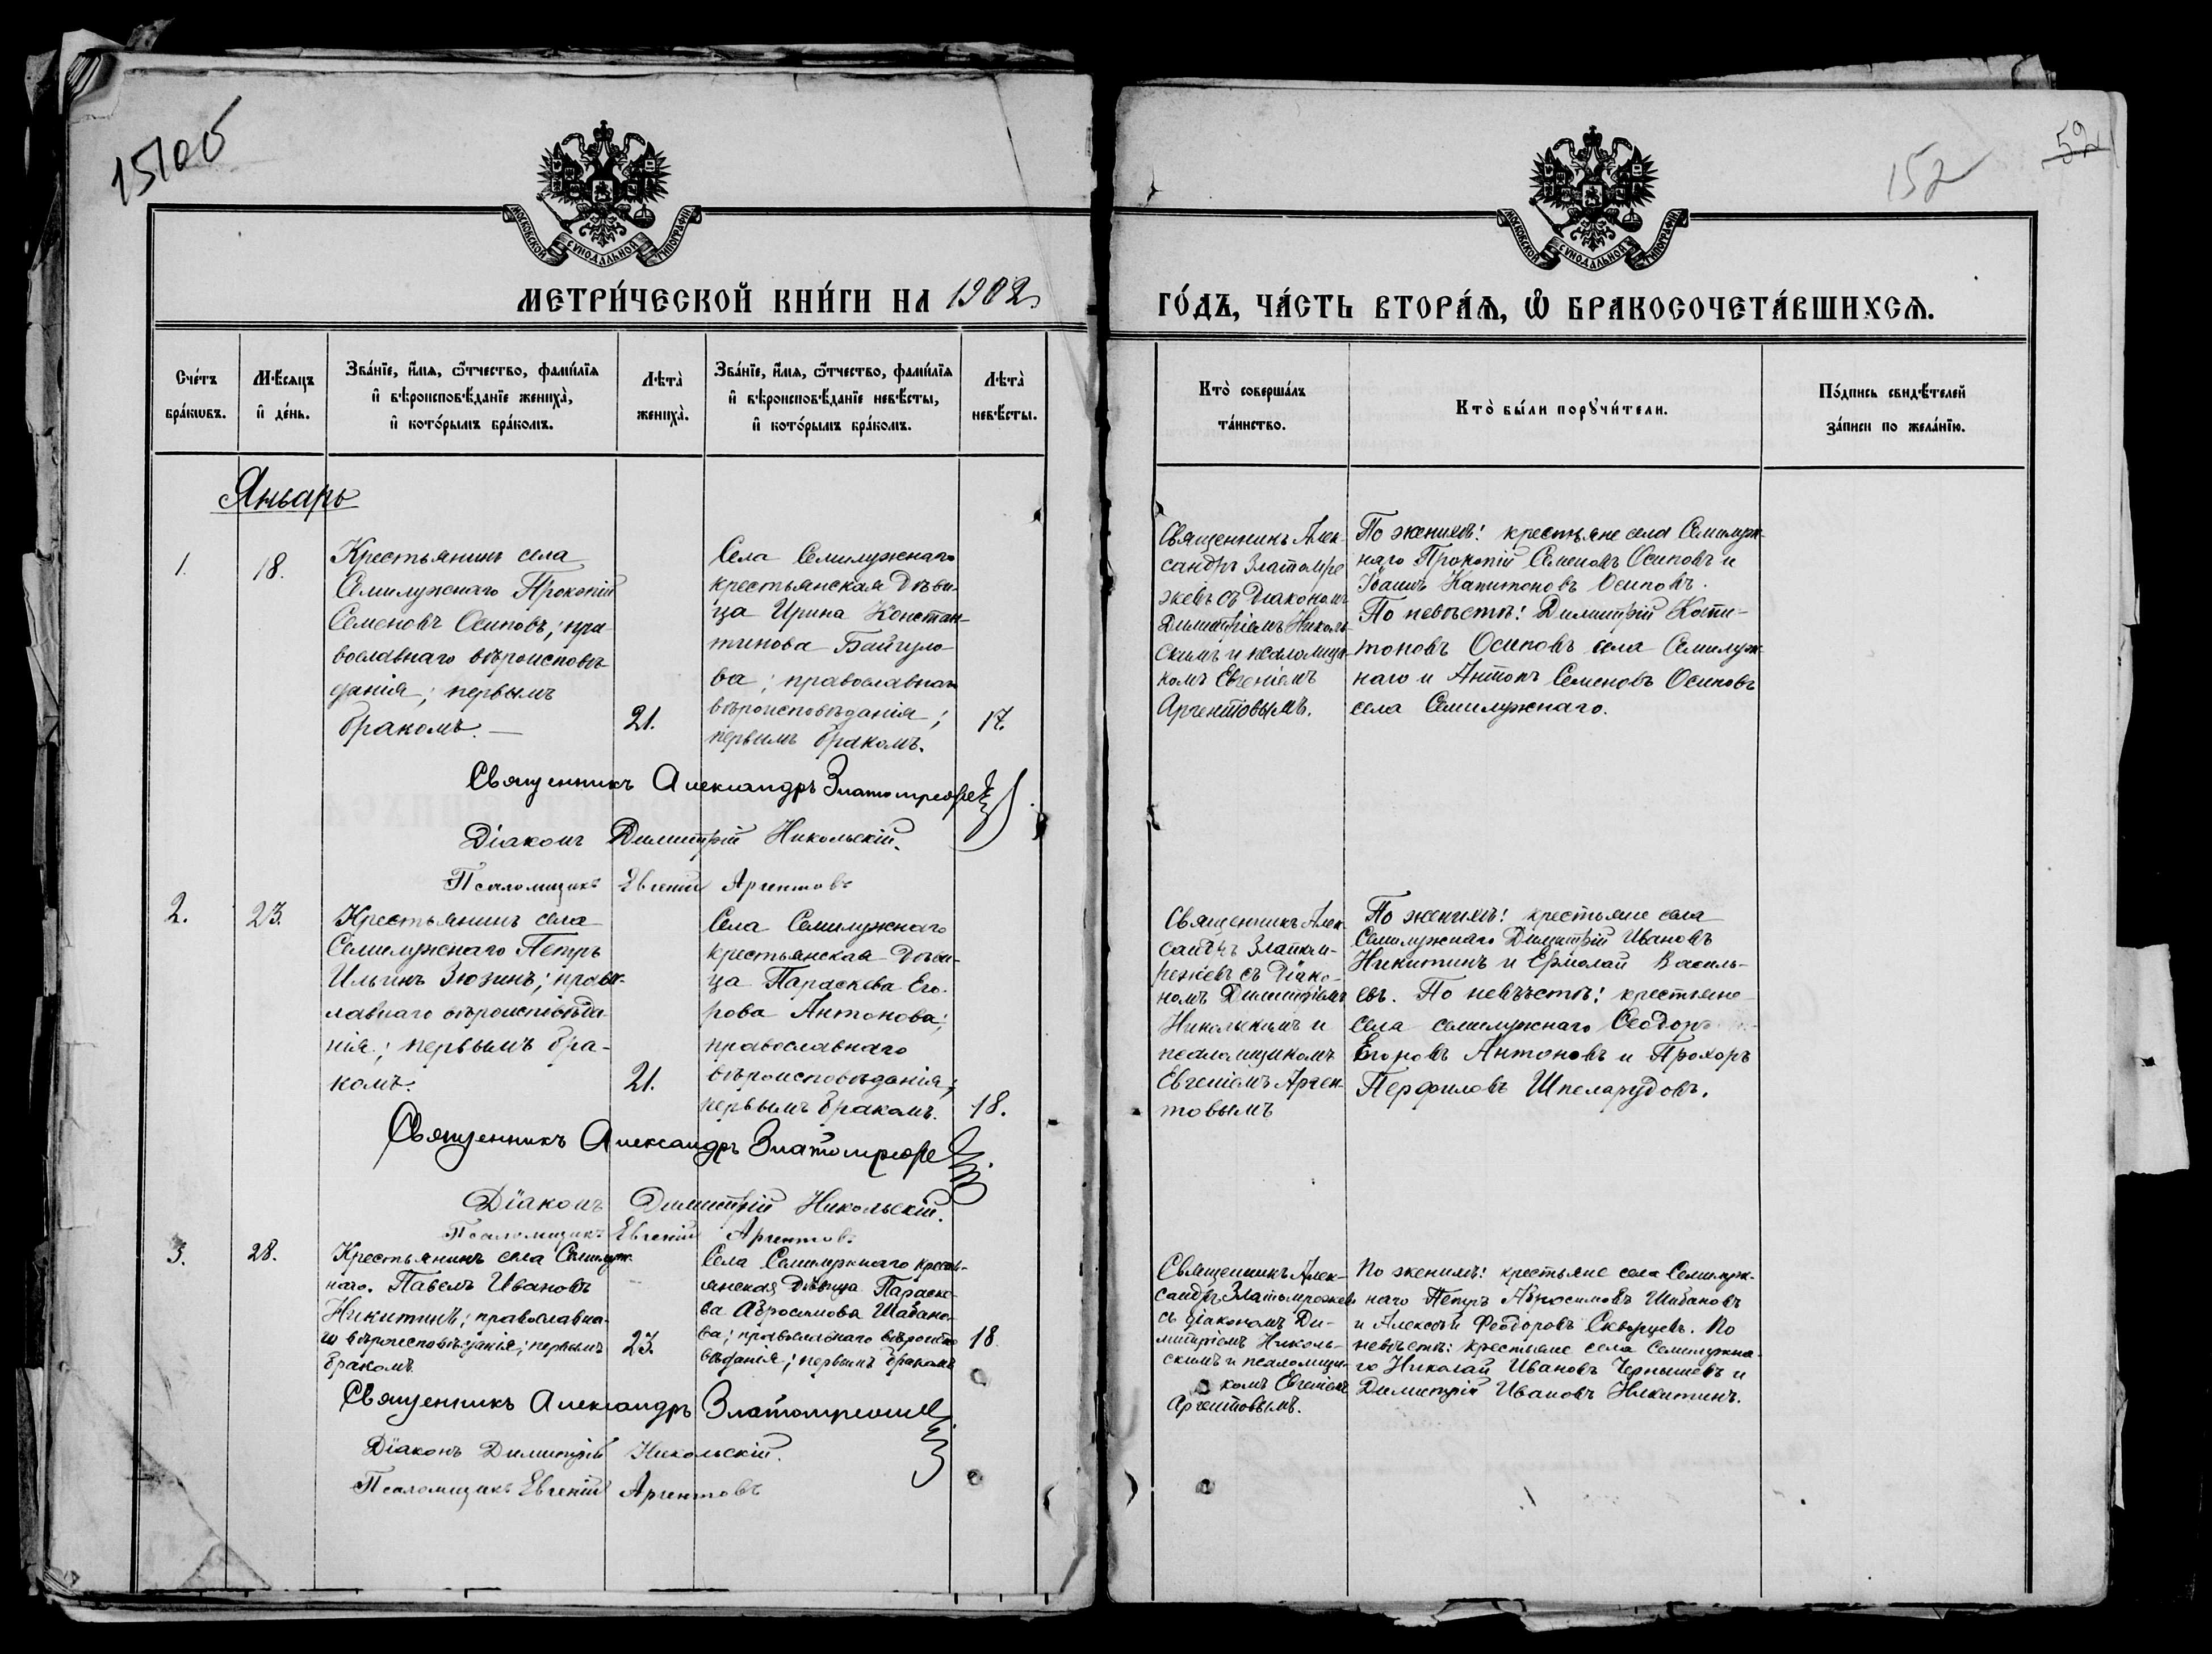 151об
152
52
МОСКОВСКОЙ СѴНОДАЛЬНОЙ ТИПОГРАФІИ
МОСКОВСКОЙ СѴНОДАЛЬНОЙ ТИПОГРАФІИ
МЕТРИ́ЧЕСКОЙ КНИ́ГИ НА 1902
ГО́ДЪ, ЧА́СТЬ ВТОРА́Ѧ, Ѡ҆ БРАКОСОЧЕТА́ВШИХСѦ.
Сче́тъ
бра́кѡвъ.
Мѣ́сѧцъ
и҆ де́нь.
Зва́нїе, и҆́мѧ, ѻ҆́тчество, фами́лїѧ
и҆ вѣроисповѣ́данїе жениха̀,
и҆ кото́рымъ бра́комъ.
Лѣта̀
жениха̀.
Зва́нїе, и҆́мѧ, ѻ҆́тчество, фами́лїѧ
и҆ вѣроисповѣ́данїе невѣ́сты,
и҆ кото́рымъ бра́комъ.
Лѣта̀
невѣ́сты.
Кто̀ соверша́лъ
та́инство.
Кто̀ бы́ли порꙋчи́тели.
По́дпись свидѣ́телей
за́писи по жела́нїю.
Январь
1.
18.
Крестьянинъ села
Семилужнаго Прокопій
Семеновъ Осиповъ; пра-
вославнаго вѣроисповѣ-
данія; первымъ
бракомъ.
21.
Села Семилужнаго
крестьянская дѣви-
ца Ирина Констан-
тинова Байгуло-
ва; православнаго
вѣроисповѣданія;
первымъ бракомъ.
17.
Священникъ Алек-
сандръ Златомре
жевъ съ Діакономъ
Димитріемъ Николь-
скимъ и псаломщи-
комъ Евгеніемъ
Аргентовымъ.
По женихѣ: крестьяне села Семилуж-
наго Прокопій Семеновъ Осиповъ и
Иванъ Капитоновъ Осиповъ.
По невѣстѣ: Димитрій Копи-
тоновъ Осиповъ села Семилуж-
наго и Антонъ Семеновъ Осиповъ
села Семилужнаго.
Священникъ Александръ
Діаконъ Димитрій Никольскій.
Псаломщикъ Евгеній Аргентовъ
2.
23.
Крестьянинъ села
Семилужнаго Петръ
Ильинъ Зюзинъ; право-
лавнаго вѣроисповѣда-
нія; первымъ бра-
комъ.
21.
Села Семилужнаго
крестьянская дѣви-
ца Параскева Его-
рова Антонова;
православнаго
вѣроисповѣданія;
первымъ бракомъ.
18.
Священникъ Алек-
сандръ Златом-
режевъ съ Діако-
номъ Димитріемъ
Никольскимъ и
псаломщикомъ
Евгеніемъ Арген-
товымъ
По женихѣ: крестьяне села
Семилужнаго Димитрій Ивановъ
Никитинъ и Ермолай Василь-
евъ. По невѣстѣ: крестьяне
села семилужнаго Ѳеодоръ
Егоровъ Антоновъ и Прохоръ
Перфиловъ
Священникъ Александръ
Діаконъ Димитрій Никольскій.
Псаломщикъ Евгеній Аргентовъ
3.
28.
Крестьянинъ села Семилуж-
наго. Павелъ Ивановъ
Никитинъ; православна-
го вѣроисповѣданія; первымъ
бракомъ.
23.
Села Семилужнаго кресть-
янская дѣвица Параске-
ва Абросимова Шабано-
ва; православнаго вѣроиспо
вѣданія; первымъ бракомъ
18
Священникъ Алек-
сандръ Златомрежевъ
съ діакономъ Ди-
митріемъ Николь-
скимъ и псаломщи-
комъ Евгеніемъ
Аргентовымъ.
По женихѣ: крестьяне села Семилуж-
наго Петръ Абросимовъ Шабановъ
и Алексѣй Ѳеодоровъ Скворцевъ. По
невѣстѣ: крестьяне села Семилужна-
го Николай Ивановъ Чернышевъ и
Димитрій Ивановъ Никитинъ.
Священникъ Александръ
Діаконъ Димитрій Никольскій.
Псаломщикъ Евгеній Аргентовъ